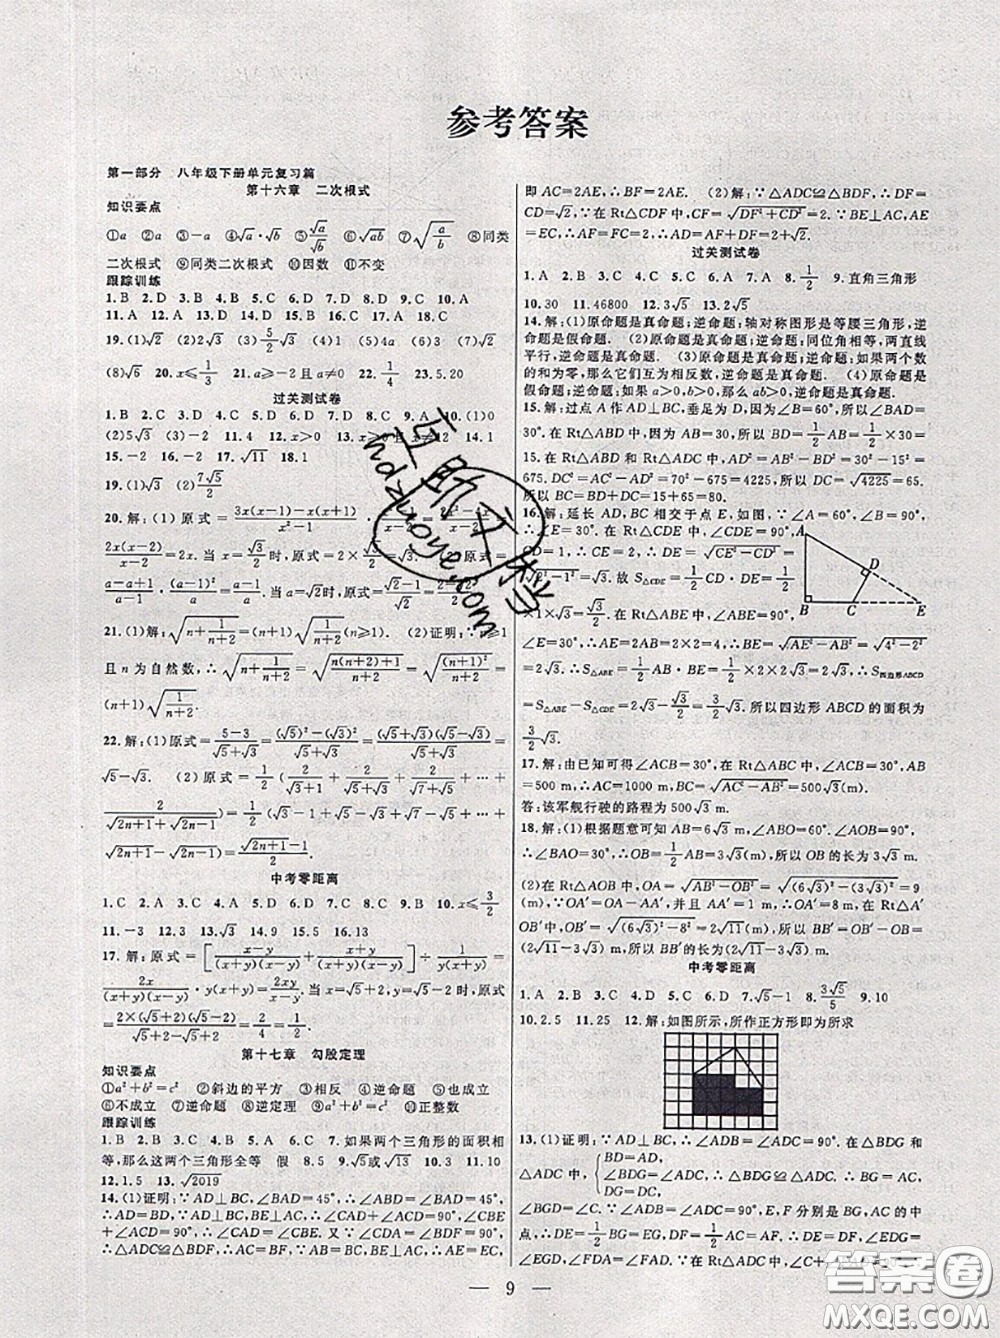 参考答案
第一部分 八年级下册单元复习篇
第十六章 二次根式
知识要点
①a ②a ③-a ④√a·√b ⑤√a/√b ⑥√(ab) ⑦√(a/b) ⑧同类
二次根式 ⑨同类二次根式 ⑩因数 ⑪不变
跟踪训练
1.B 2.D 3.D 4.A 5.B 6.D 7.B 8.C 9.C 10.A
11.A 12.A 13.D 14.D 15.B 16.D 17.A 18.C
19.(1)√2 (2)√3 (3)5/2√3 (4)1 (5)4a (6)√3 (7)√3
(8)√6 20.x≤1/3 21.a≥-2且a≠0 22.-1/4 23.5,20
过关测试卷
1.B 2.C 3.D 4.C 5.D 6.C 7.A 8.A 9.A 10.(1)0
(2)5√3 11.4 12.x>0 14.1
15.-2 16.-2 17.√11 18.1
19.(1)√3 (2)7√5/2
20.解:(1)原式=(3x(x-1)-x(x+1))/(x²-1)·
2x(x-2)/(x-2)=2x. 当 x=√3/2时,原式=2×√3/2
21.(1)解:√(n+1/(n+2))=(n+1)√(1/(n+2))(n≥1). (2)证明:
且 n 为自然数,∴√(n+1/(n+2))=√((n(n+2)+1)/(n+2))=√((n+1)²/(n+2))=
(n+1)√(1/(n+2)).
22.解:(1)原式=(5-3)/(√5+√3)=((√5)²-(√3)²)/(√5+√3)=(√5+√3)(√5-√3)/(√5+√3)
=√5-√3. (2)原式=1/2(2/(√3+1)+2/(√5+√3)+2/(√7+√5)+…+
2/(√(2n+1)+√(2n-1)))=1/2(√3-1+√5-√3+√7-√5+…+
√(2n+1)-√(2n-1))=(√(2n+1)-1)/2
中考零距离
1.C 2.A 3.C 4.C 5.D 6.D 7.D 8.B 9.C 10.x≤3/2
11.-3 12.3 13.√3 14.9 15.5 16.13
17.解:原式=[(x-y)/((x+y)(x-y))+(x+y)/((x+y)(x-y))]÷1/(y(x+y))=
2x/((x+y)(x-y))·y(x+y)=2xy/(x-y). 当 x=√5+2,y=√5-2 时,原式=
2×(√5+2)(√5-2)/(√5+2-√5+2)=2/4=1/2.
第十七章 勾股定理
知识要点
①a²+b²=c² ②斜边的平方 ③相反 ④逆命题 ⑤也成立
⑥不成立 ⑦逆命题 ⑧逆定理 ⑨a²+b²=c² ⑩正整数
跟踪训练
1.B 2.D 3.A 4.C 5.B 6.C 7.如果两个三角形的面积相
等,那么这两个三角形全等 假 8.5 9.√5或√13 10.3 11.10
12.1.5 13.√2019
14.(1)证明:∵AD⊥BC,∠BAD=45°,∴∠ABD=∠BAD=45°,
∴AD=BD,∵AD⊥BC,BE⊥AC,∴∠CAD+∠ACD=90°,∠CBE
+∠ACD=90°,∴∠CAD=∠CBE. 又∵∠CDA=∠BDF=
90°,∴△ADC≌△BDF,∴AC=BF. ∵AB=BC,BE⊥AC,∴AE=EC,
即 AC=2AE,∴BF=2AE. (2)解:∵△ADC≌△BDF,∴DF=
CD=√2,∵在 Rt△CDF 中,CF=√(DF²+CD²)=2. ∵BE⊥AC,AE
=EC,∴AF=FC=2,∴AD=AF+DF=2+√2.
过关测试卷
1.A 2.C 3.D 4.B 5.C 6.A 7.A 8.1/2 9.直角三角形
10.30 11.46800 12.3√5 13.2√5
14.解:(1)原命题是真命题;逆命题:轴对称图形是等腰三角形,
逆命题是假命题. (2)原命题是真命题;逆命题:同位角相等,两直线
平行,逆命题是真命题. (3)原命题是真命题;逆命题:如果两个数
的和为零,那么它们互为相反数,逆命题是真命题. (4)原命题是
假命题;逆命题:如果a>0,b>0,那么ab>0,逆命题是真命题.
15.解:过点 A 作 AD⊥BC,垂足为 D,因为∠B=60°,所以∠BAD=
30°. 在 Rt△ABD 中,因为∠BAD=30°,所以 BD=1/2AB=1/2×30=
15. 在 Rt△ABD 和 Rt△ADC 中,AD²=AB²-BD²=30²-15²=
675. DC²=AC²-AD²=70²-675=4225,所以 DC=√4225=65.
所以 BC=BD+DC=15+65=80.
16.解:延长 AD,BC 相交于点 E,如图. ∵∠A=60°,∠B=90°,
∴∠E=30°. 在 Rt△CDE 中,∠CDE=90°,
CD=1,∴CE=2,∴DE=√(CE²-CD²)=
√(2²-1²)=√3. 故 S△CDE=1/2CD·DE=1/2
×1×√3=√3/2. 在 Rt△ABE 中,∠ABE=90°,
∠E=30°,∴AE=2AB=4,∴BE=√(AE²-AB²)=√(4²-2²)
=2√3,∴S△ABE=1/2AB·BE=1/2×2×2√3=2√3. ∴S四边形ABCD
=S△ABE-S△CDE=2√3-√3/2=3/2√3. 所以四边形 ABCD 的面积为
3/2√3.
A
D
B
C
E
17.解:由已知可得∠ACB=30°,在 Rt△ABC 中,∠ABC=90°,AB
=500 m,∴AC=1000 m,∴BC=√(AC²-AB²)=500√3 m.
答:该军舰行驶的路程为 500√3 m.
18.解:(1)根据题意可知 AB=6√3 m,∠ABO=60°,∠AOB=90°,
∴∠BAO=30°,∴OB=1/2AB=3√3(m),所以 OB 的长为3√3 m.
(2)在 Rt△AOB 中,OA=√(AB²-OB²)=√((6√3)²-(3√3)²)=9
(m),∵OA′=OA-AA′,并且 AA′=1 m,∴OA′=8 m. 在 Rt△A′
OB′中,OB′=√((6√3)²-8²)=2√11(m),∴BB′=OB′-OB=
(2√11-3√3)m. 所以 BB′的长为(2√11-3√3)m.
中考零距离
1.A 2.A 3.C 4.C 5.C 6.D 7.√5-1 8.3√5/5 9.10
10.2.5 11.25 12.解:如图所示,所作正方形即为所求
13.(1)证明:∵AD⊥BC,∴∠ADB=∠ADC=90°. 在△BDG 和
△ADC 中,{BD=AD, ∠BDG=∠ADC, DG=DC, ∴△BDG≌△ADC,∴BG=AC,
∠BGD=∠C. ∵∠ADB=∠ADC=90°,E,F 分别是 BG,AC 的中
点,∴DE=1/2BG=EG,DF=1/2AC=AF. ∴DE=DF,∠EDG=
∠EGD,∠FDA=∠FAD. ∵在 Rt△ADC 中,∠ADC=90°,∴∠C+
9
互助文档
hdzuoye.com
答案圈
MXQE.COM